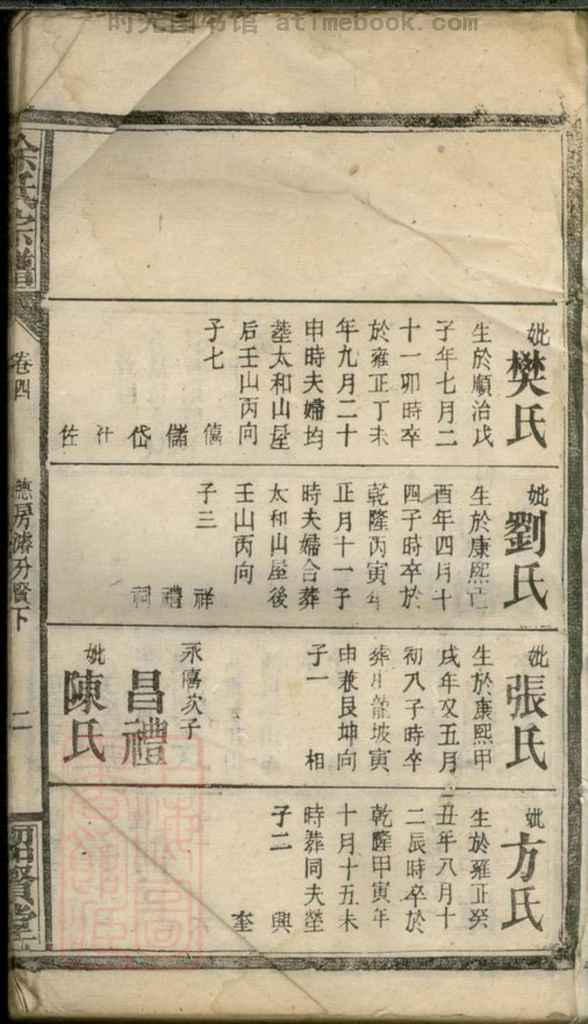 时光图书馆 atimebook.com
妣樊氏
生於順治戊
子年七月二
十一卯時卒
於雍正丁未
年九月二十
申時夫婦均
塟太和山屋
后壬山丙向
子七
僖
儲
岱
仕
佐
妣劉氏
生於康熙己
酉年四月十
四子時卒於
乾隆丙寅年
正月十一子
時夫婦合葬
太和山屋後
壬山丙向
子三
祥
禮
祠
妣張氏
生於康熙甲
戌年又五月
初八子時卒
葬 龍坡寅
申兼艮坤向
子一
相
永 次子
昌禮
妣陳氏
妣方氏
生於雍正癸
丑年八月十
二辰時卒於
乾隆甲寅年
十月十五未
時葬同夫塋
子二
興
奎
氏宗譜
卷四
房濬分賢下
二
賢堂